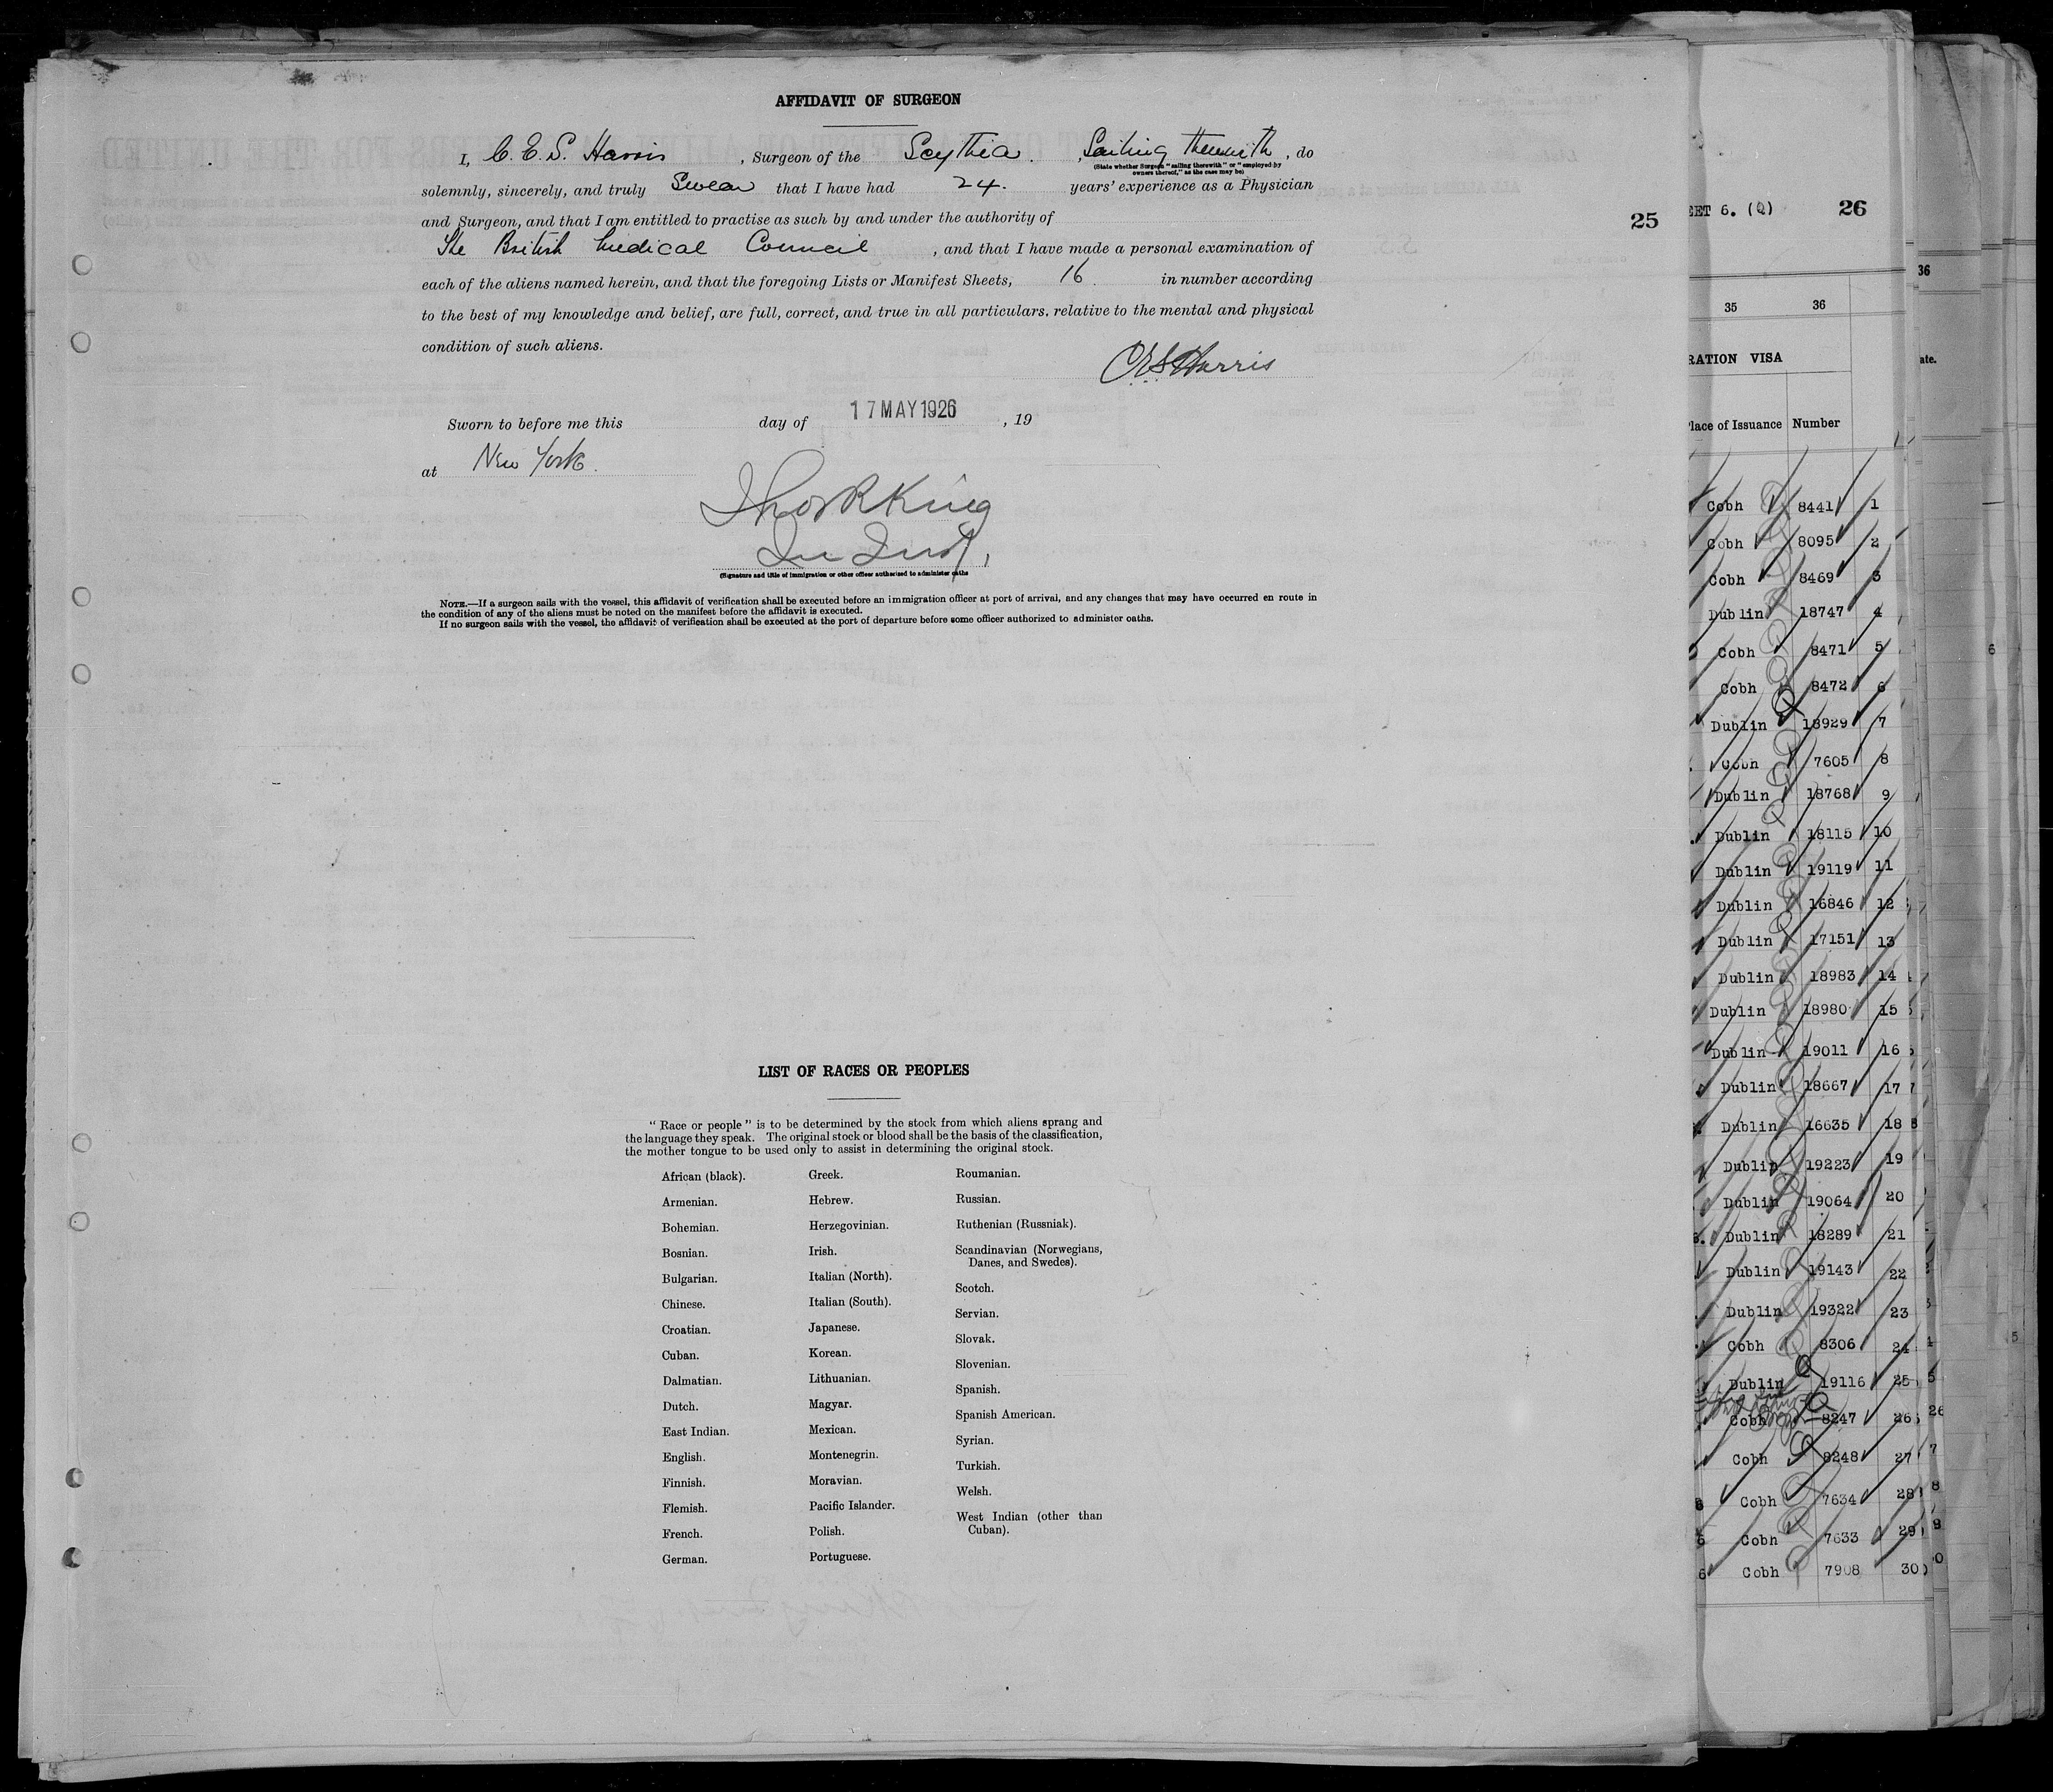 AFFIDAVIT OF SURGEON
I, C. E. S. Harris, Surgeon of the Scythia. , Sailing therewith, do
(State whether Surgeon "sailing therewith" or "employed by
owners thereof," as the case may be)
solemnly, sincerely, and truly Swear that I have had 24. years' experience as a Physician
and Surgeon, and that I am entitled to practise as such by and under the authority of
The British Medical Council, and that I have made a personal examination of
each of the aliens named herein, and that the foregoing Lists or Manifest Sheets, 16. in number according
to the best of my knowledge and belief, are full, correct, and true in all particulars, relative to the mental and physical
condition of such aliens.
CES Harris
Sworn to before me this day of 17 MAY 1926, 19
at New York.
King
(Signature and title of immigration or other officer authorized to administer oaths
NOTE.—If a surgeon sails with the vessel, this affidavit of verification shall be executed before an immigration officer at port of arrival, and any changes that may have occurred en route in
the condition of any of the aliens must be noted on the manifest before the affidavit is executed.
If no surgeon sails with the vessel, the affidavit of verification shall be executed at the port of departure before some officer authorized to administer oaths.
25
LIST OF RACES OR PEOPLES
"Race or people" is to be determined by the stock from which aliens sprang and
the language they speak. The original stock or blood shall be the basis of the classification,
the mother tongue to be used only to assist in determining the original stock.
African (black).
Armenian.
Bohemian.
Bosnian.
Bulgarian.
Chinese.
Croatian.
Cuban.
Dalmatian.
Dutch.
East Indian.
English.
Finnish.
Flemish.
French.
German.
Greek.
Hebrew.
Herzegovinian.
Irish.
Italian (North).
Italian (South).
Japanese.
Korean.
Lithuanian.
Magyar.
Mexican.
Montenegrin.
Moravian.
Pacific Islander.
Polish.
Portuguese.
Roumanian.
Russian.
Ruthenian (Russniak).
Scandinavian (Norwegians,
Danes, and Swedes).
Scotch.
Servian.
Slovak.
Slovenian.
Spanish.
Spanish American.
Syrian.
Turkish.
Welsh.
West Indian (other than
Cuban).
EET 6. (Q) 26
35 36
RATION VISA
Place of Issuance Number
Cobh 8441 1
Cobh 8095 2
Cobh 8469 3
Dublin 18747 4
Cobh 8471 5
Cobh 8472 6
Dublin 18929 7
Cobh 7605 8
Dublin 18768 9
Dublin 18115 10
Dublin 19119 11
Dublin 16846 12
Dublin 17151 13
Dublin 18983 14
Dublin 18980 15
Dublin 19011 16
Dublin 18667 17
Dublin 16635 18
Dublin 19223 19
Dublin 19064 20
Dublin 18289 21
Dublin 19143 22
Dublin 19322 23
Cobh 8306 24
Dublin 19116 25
Cobh 8247 26
Cobh 8248 27
Cobh 7634 28
Cobh 7633 29
Cobh 7908 30
36
ate.
6
5